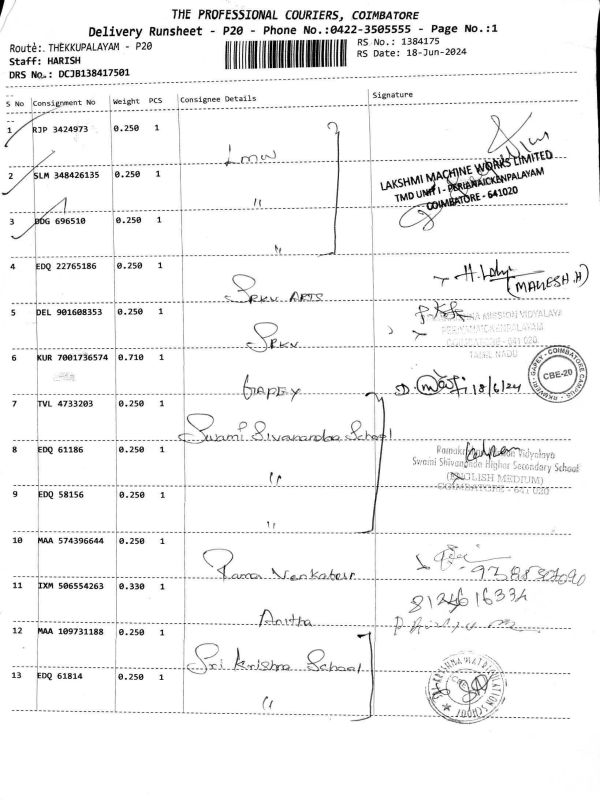 THE PROFESSIONAL COURIERS, COIMBATORE
Delivery Runsheet - P20 - Phone No.:0422-3505555 - Page No.:1
Route: THEKKUPALAYAM - P20
RS No.: 1384175
Staff: HARISH
RS Date: 18-Jun-2024
DRS No.: DCJB138417501
S No Consignment No Weight PCS Consignee Details Signature
1 RJP 3424973 0.250 1
Lmw
2 SLM 348426135 0.250 1
"
LAKSHMI MACHINE WORKS LIMITED
TMD UNIT I - PERIANAICKENPALAYAM
COIMBATORE - 641020
3 DDG 696510 0.250 1
"
4 EDQ 22765186 0.250 1
SRKV ARTS
(MAHESH.H)
5 DEL 901608353 0.250 1
SRKV
MISSION VIDYALAYA
PERIANAICKENPALAYAM
COIMBATORE - 641 020
TAMIL NADU
6 KUR 7001736574 0.710 1
GAPEY
18/6/24
COIMBATORE CAMPUS
CBE-20
7 TVL 4733203 0.250 1
Swami Sivanandaa School
8 EDQ 61186 0.250 1
"
Vidyalaya
Swami Shivananda Higher Secondary School
(ENGLISH MEDIUM)
COIMBATORE - 641 020
9 EDQ 58156 0.250 1
"
10 MAA 574396644 0.250 1
Rama Venkatesh
11 IXM 506554263 0.330 1
Anitha
8124616334
12 MAA 109731188 0.250 1
Sri Krishna School
13 EDQ 61814 0.250 1
"
SRI KRISHNA MATRICULATION SCHOOL